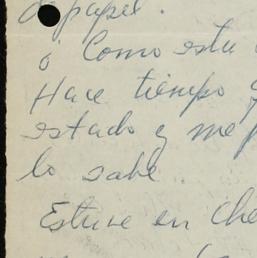 papel.
ó Como esta
Hace tiempo
estado y me
lo sabe.
Estuve en Che